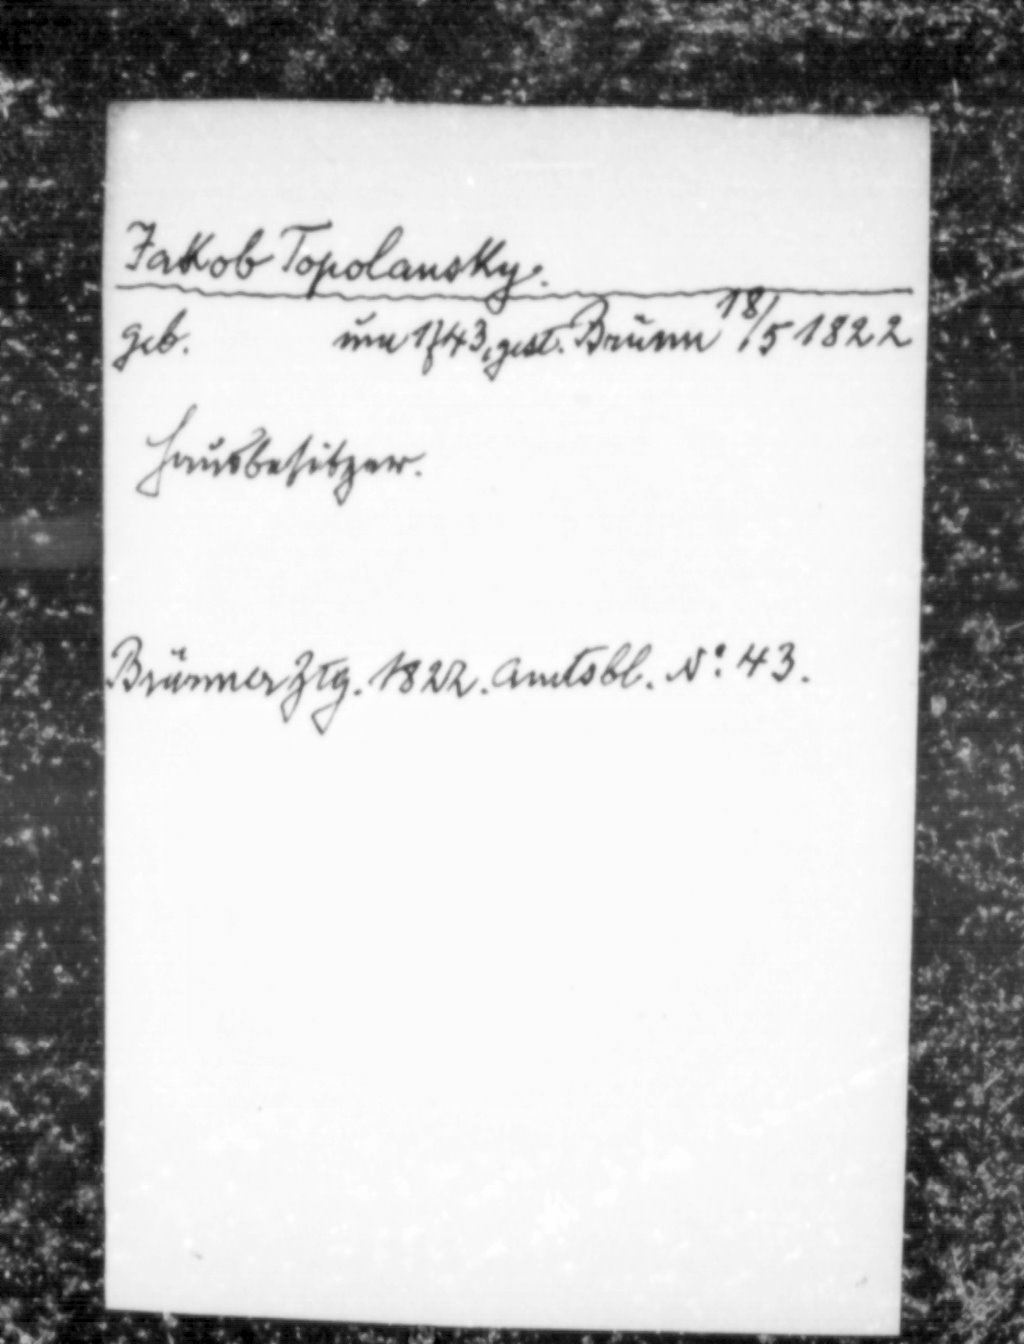 Jakob Topolansky.
geb. um 1743, gest. Brünn 18/5 1822
Hausbesitzer.
Brünner Ztg. 1822. Amtsbl. No. 43.